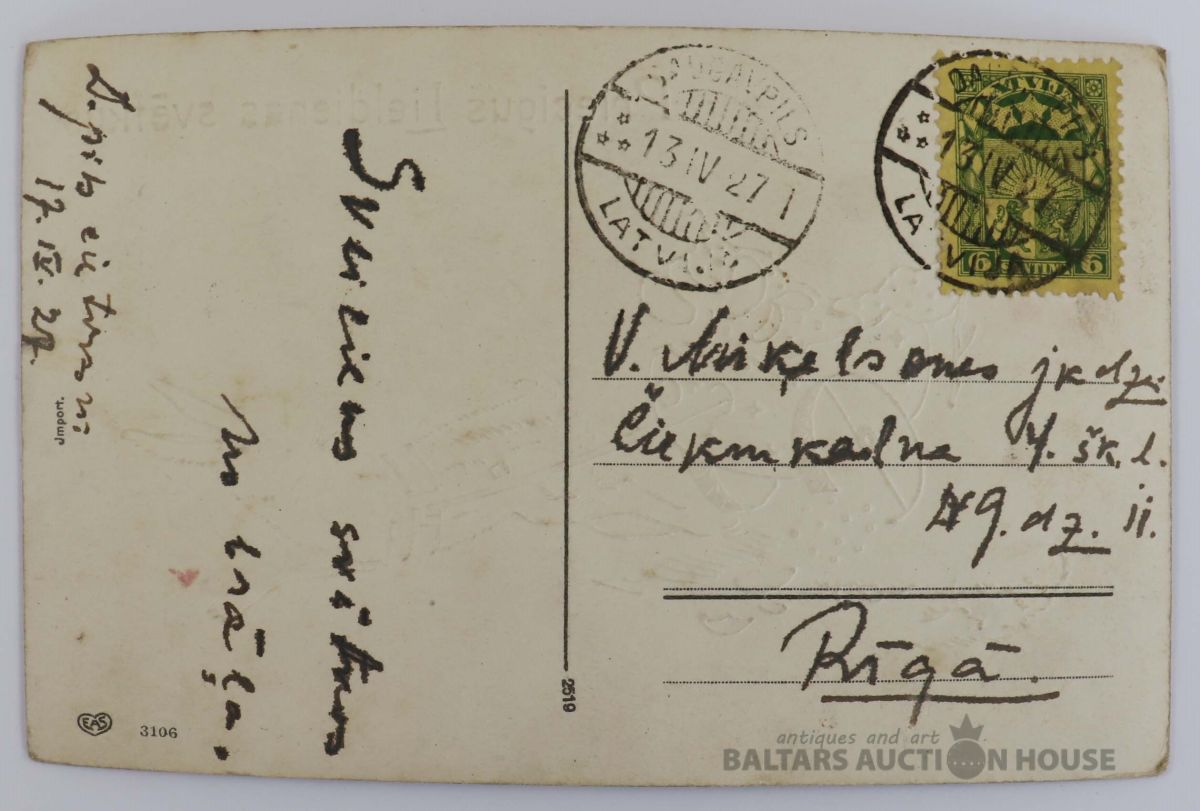 Sveiciens svētkos
no brāļa.
17. IV. 27.
Jmport.
EAS 3106
2519
DAUGAVPILS
13 IV 27 1
LATVIJA
LATVIJA
6 SANTIMI 6
13 IV 27
LATVIJA
V. Miķelsones jkdz.
Čiekurkalna 4. šk. l.
№ 9. dz. ii.
Rīgā.
antiques and art
BALTARS AUCTION HOUSE